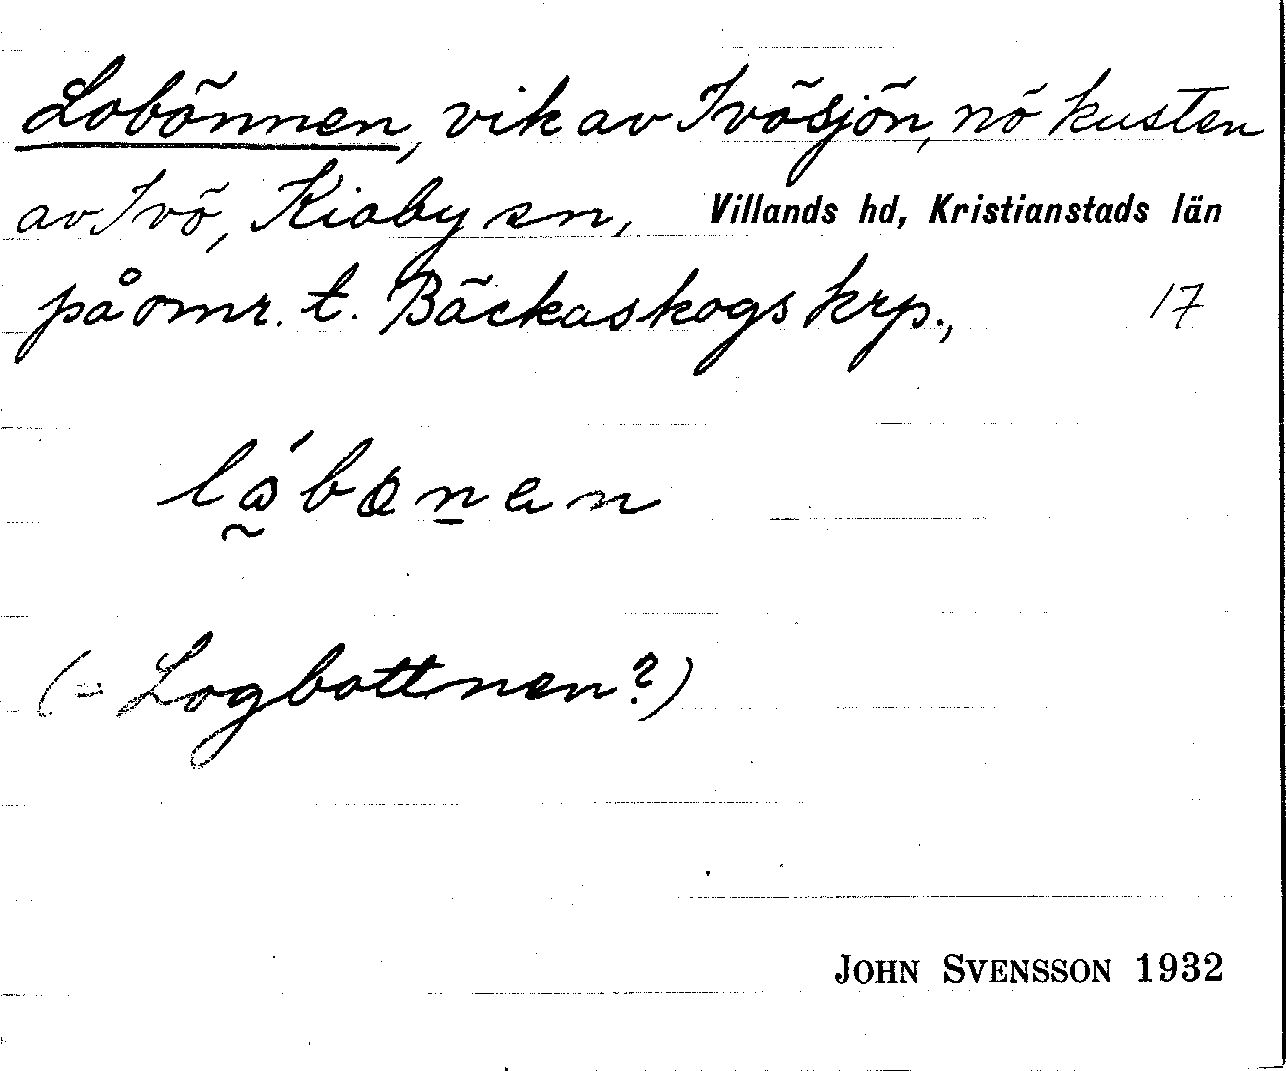 Lobönnen, vik av Ivösjön, nö kusten
av Ivö, Kiaby sn, Villands hd, Kristianstads län
på omr. t. Bäckaskogs krp., 17
(= Logbottnen?)
JOHN SVENSSON 1932